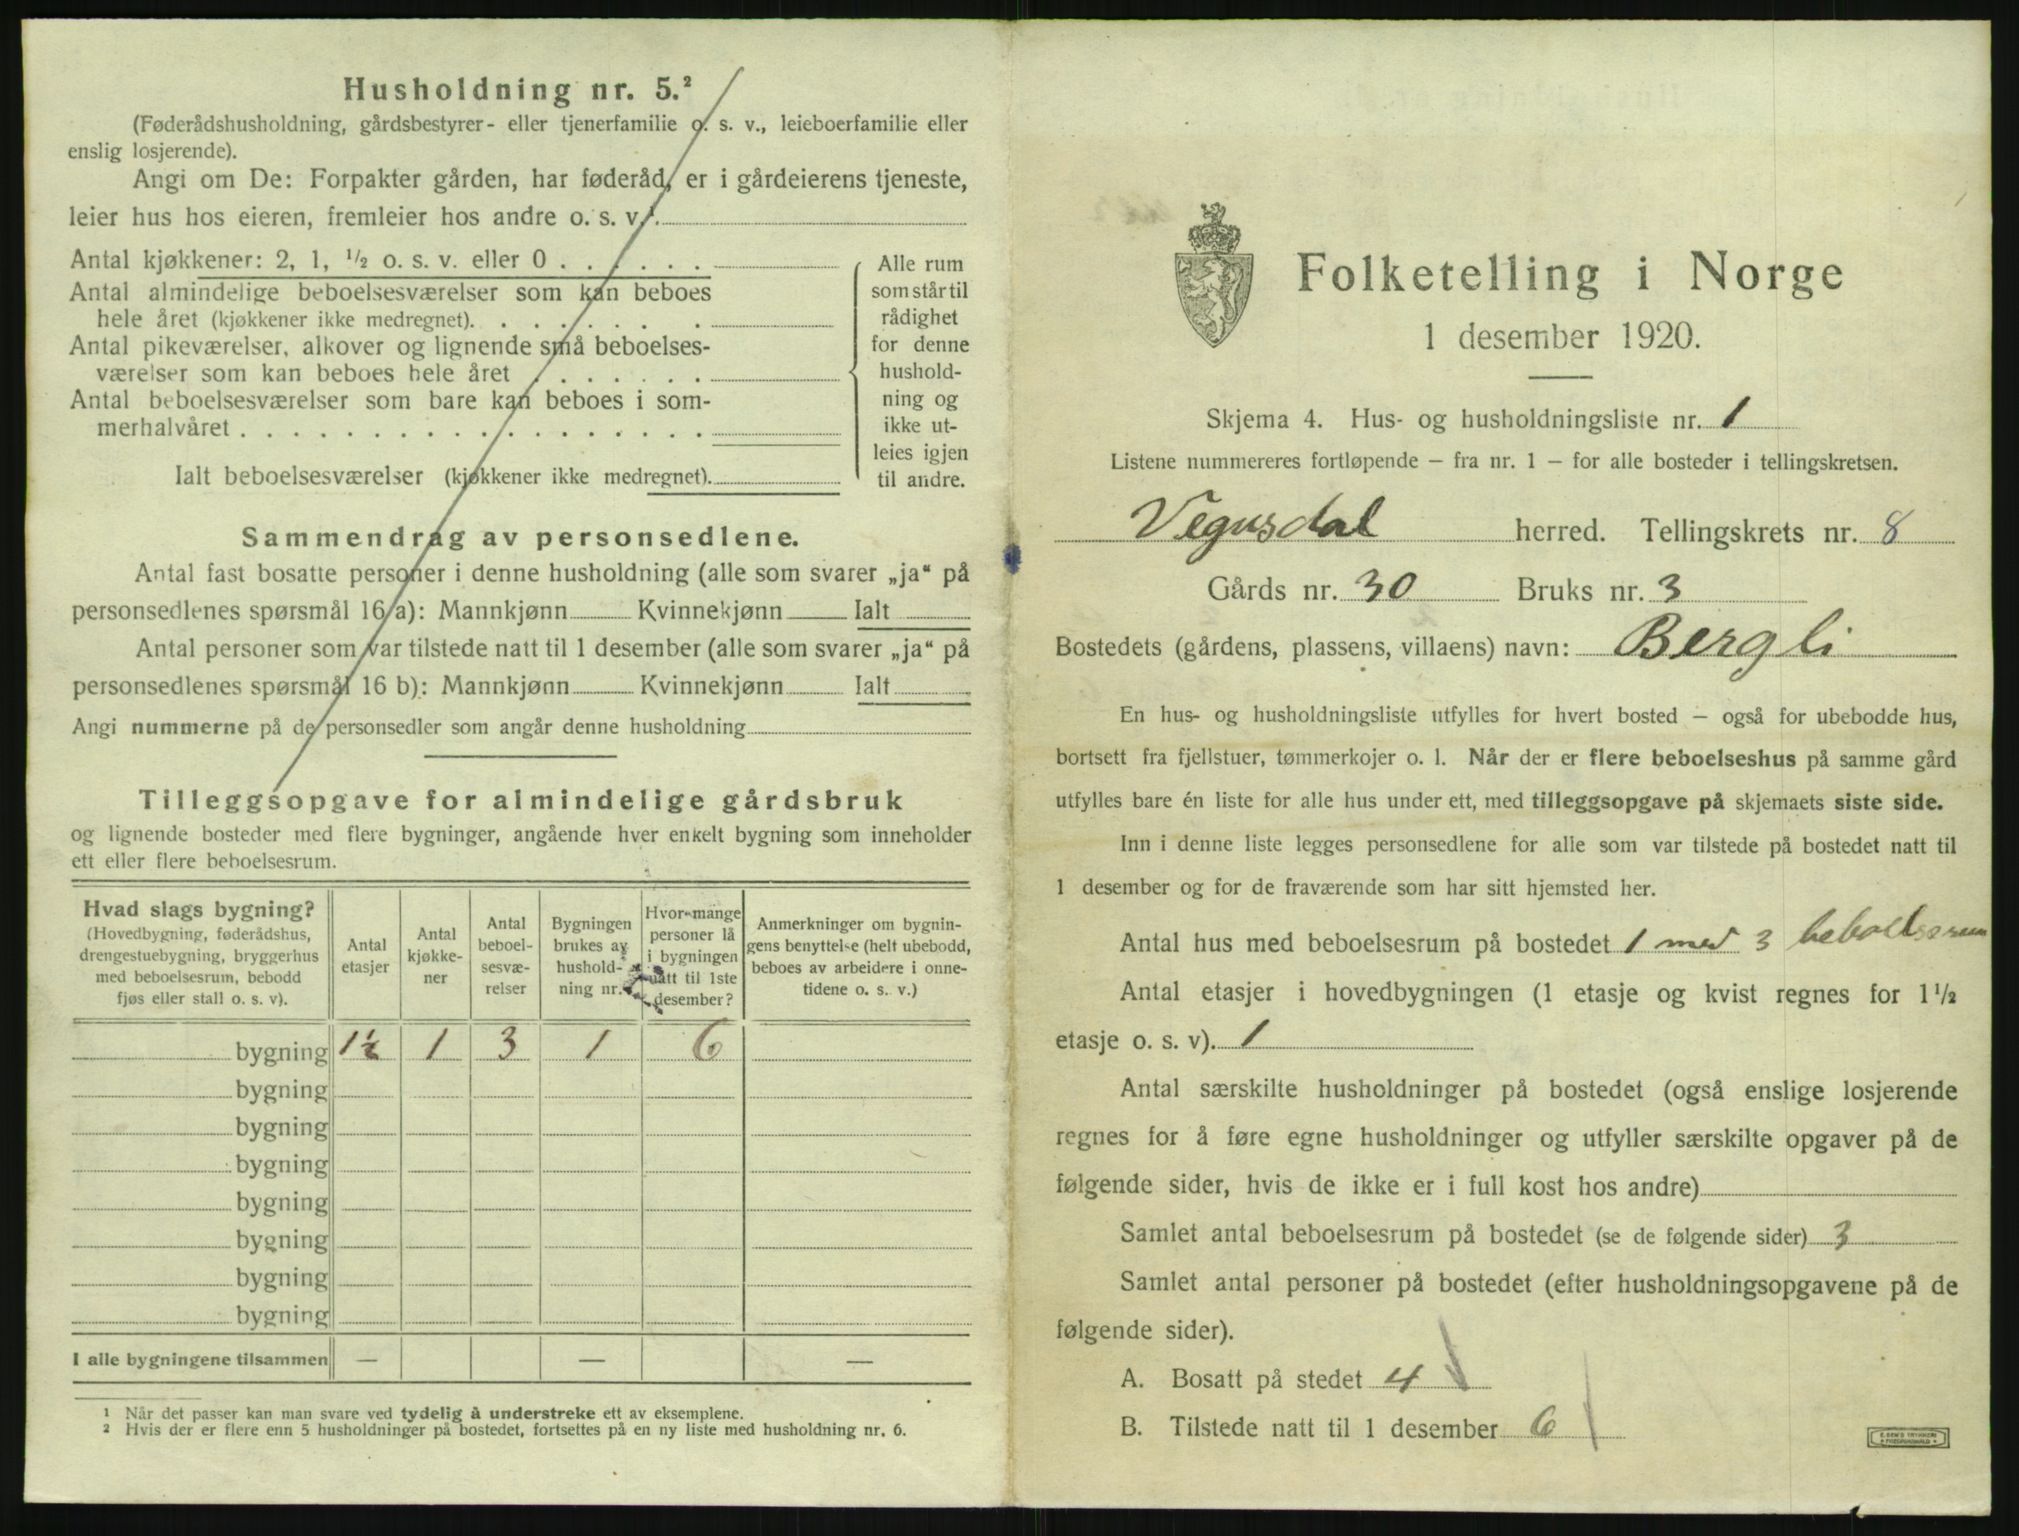 Husholdning nr. 5.²
(Føderådshusholdning, gårdsbestyrer- eller tjenerfamilie o. s. v., leieboerfamilie eller
enslig losjerende).
Angi om De: Forpakter gården, har føderåd, er i gårdeierens tjeneste,
leier hus hos eieren, fremleier hos andre o. s. v.¹
Antal kjøkkener: 2, 1, ½ o. s. v. eller 0 . . . . . .
Antal almindelige beboelsesværelser som kan beboes
hele året (kjøkkener ikke medregnet). . . . . . . . .
Antal pikeværelser, alkover og lignende små beboelses-
værelser som kan beboes hele året . . . . . . .
Antal beboelsesværelser som bare kan beboes i som-
merhalvåret . . . . . . . . . . . . . . . . . .
Ialt beboelsesværelser (kjøkkener ikke medregnet).
Alle rum
som står til
rådighet
for denne
hushold-
ning og
ikke ut-
leies igjen
til andre.
Sammendrag av personsedlene.
Antal fast bosatte personer i denne husholdning (alle som svarer „ja“ på
personsedlenes spørsmål 16 a): Mannkjønn Kvinnekjønn Ialt
Antal personer som var tilstede natt til 1 desember (alle som svarer „ja“ på
personsedlenes spørsmål 16 b): Mannkjønn Kvinnekjønn Ialt
Angi nummerne på de personsedler som angår denne husholdning
Tilleggsopgave for almindelige gårdsbruk
og lignende bosteder med flere bygninger, angående hver enkelt bygning som inneholder
ett eller flere beboelsesrum.
Hvad slags bygning?
(Hovedbygning, føderådshus,
drengestuebygning, bryggerhus
med beboelsesrum, bebodd
fjøs eller stall o. s. v).
Antal
etasjer
Antal
kjøkke-
ner
Antal
beboel-
sesvæ-
relser
Bygningen
brukes av
hushold-
ning nr.
Hvor mange
personer lå
i bygningen
natt til 1ste
desember?
Anmerkninger om bygnin-
gens benyttelse (helt ubebodd,
beboes av arbeidere i onne-
tidene o. s. v.)
bygning 1½ 1 3 1 6
bygning
bygning
bygning
bygning
bygning
bygning
bygning
I alle bygningene tilsammen — — —
¹ Når det passer kan man svare ved tydelig å understreke ett av eksemplene.
² Hvis der er flere enn 5 husholdninger på bostedet, fortsettes på en ny liste med husholdning nr. 6.
Folketelling i Norge
1 desember 1920.
Skjema 4. Hus- og husholdningsliste nr. 1
Listene nummereres fortløpende — fra nr. 1 — for alle bosteder i tellingskretsen.
Vegusdal herred. Tellingskrets nr. 8
Gårds nr. 30 Bruks nr. 3
Bostedets (gårdens, plassens, villaens) navn: Bergli
En hus- og husholdningsliste utfylles for hvert bosted — også for ubebodde hus,
bortsett fra fjellstuer, tømmerkojer o. l. Når der er flere beboelseshus på samme gård
utfylles bare én liste for alle hus under ett, med tilleggsopgave på skjemaets siste side.
Inn i denne liste legges personsedlene for alle som var tilstede på bostedet natt til
1 desember og for de fraværende som har sitt hjemsted her.
Antal hus med beboelsesrum på bostedet 1 med 3 beboelsesrum
Antal etasjer i hovedbygningen (1 etasje og kvist regnes for 1½
etasje o. s. v). 1
Antal særskilte husholdninger på bostedet (også enslige losjerende
regnes for å føre egne husholdninger og utfyller særskilte opgaver på de
følgende sider, hvis de ikke er i full kost hos andre)
Samlet antal beboelsesrum på bostedet (se de følgende sider) 3
Samlet antal personer på bostedet (efter husholdningsopgavene på de
følgende sider).
A. Bosatt på stedet 4
B. Tilstede natt til 1 desember 6